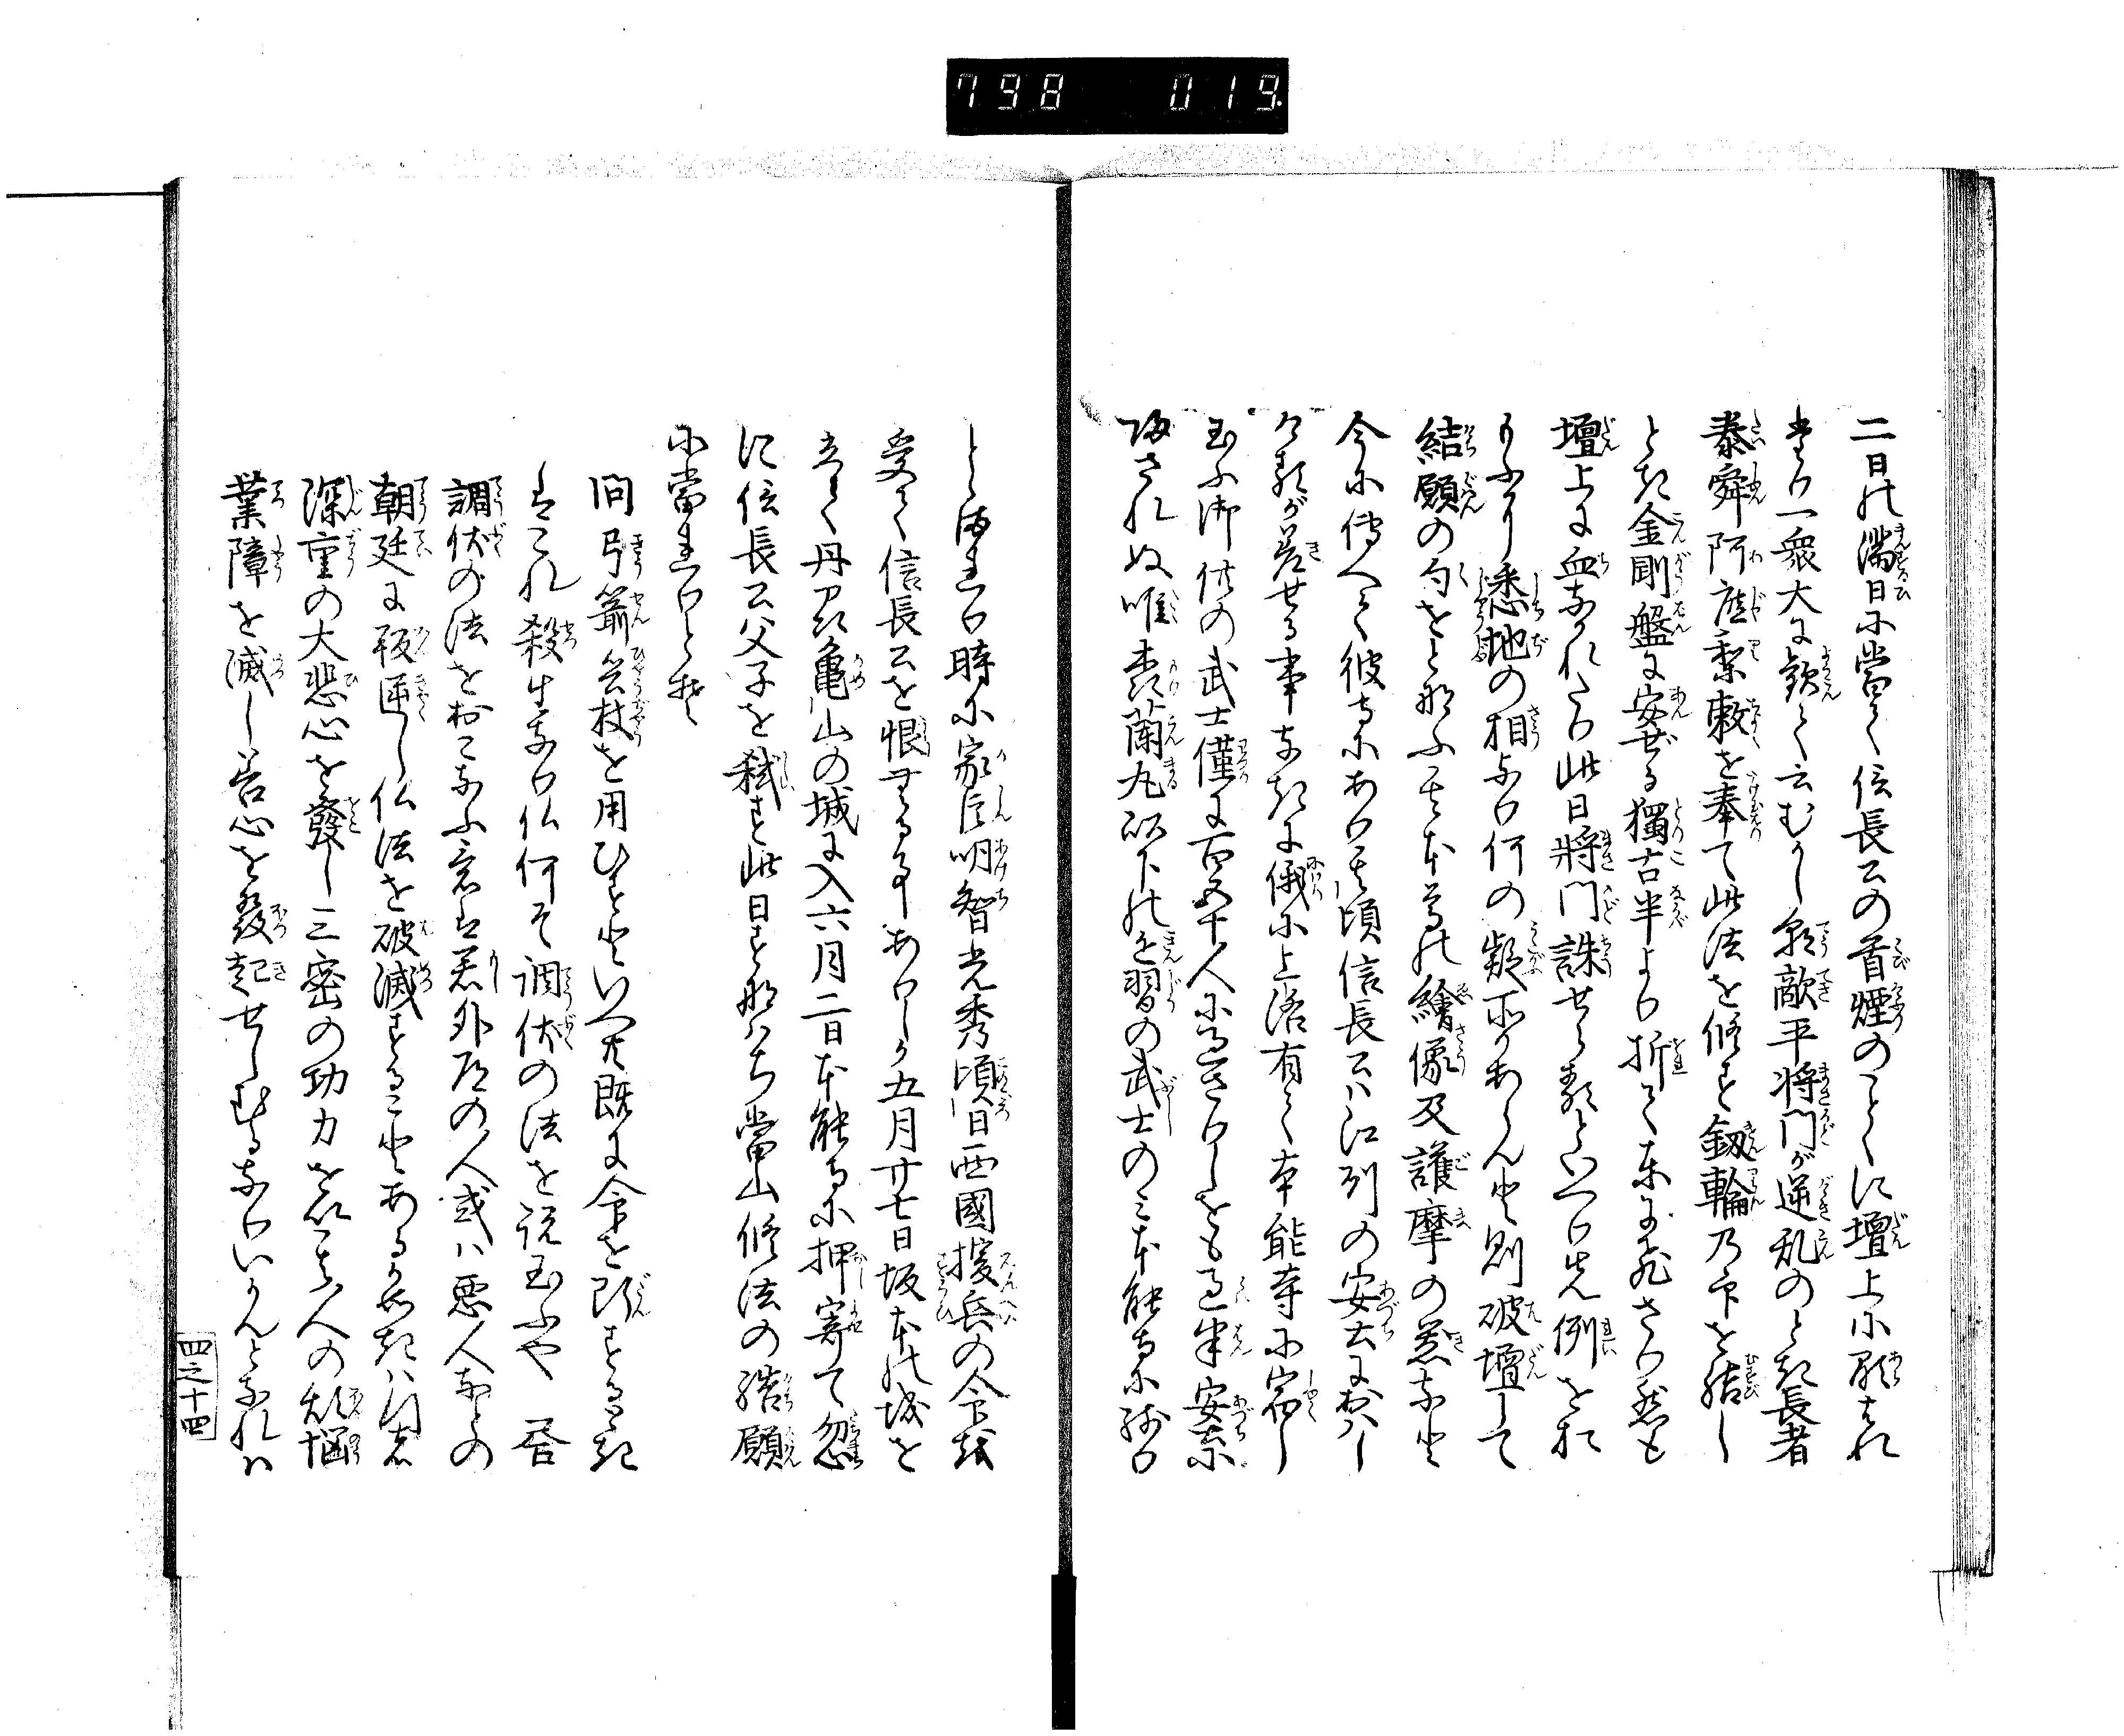 798 019
二日の満日に當て信長公の首煙のことくに壇上に顕はれ
たり一衆大に歓て云むかし朝敵平将門が逆乱のとき長者
泰舜阿闍梨敕を奉て此法を修す釼輪乃印を結し
とき金剛盤に安ぜる獨古半より折て東に飛さり然も
壇上に血ながれたり此日将門誅せらるといへり先例をお
もふに悉地の相なり何の疑かあらんと則破壇して
結願の勺をとなふ其本尊の繪像及護摩の炁など
今に傳へて彼寺にあり其頃信長公ハ江刕の安土におハし
けるが差せる事なきに俄に上洛有て本能寺に宿し
玉ふ御供の武士僅に百五十人に過さりしをも過半安土に
帰されぬ唯森蘭丸以下の近習の武士のミ本能寺に残り
とゝまれり時に家臣明智光秀頃日西國援兵の令を
受て信長公を恨むる事ありしか五月廿七日坂本の城を
立て丹州亀山の城に入六月二日本能寺に押寄て忽
に信長公父子を弑す此日すなハち當山修法の結願
に當れりとそ
問弓箭兵杖を用ひすといへ共既に命を断するき
ハこれ殺生なり仏何そ調伏の法を説玉ふや　答
調伏の法をおこなふ意は若外道の人或ハ悪人などの
朝廷に叛逆し仏法を破滅することあるか如きハ行者
深重の大悲心を發し三密の功力を以て其人の煩悩
業障を滅し善心を發起せしむるなりいかんとなれハ
四之十四